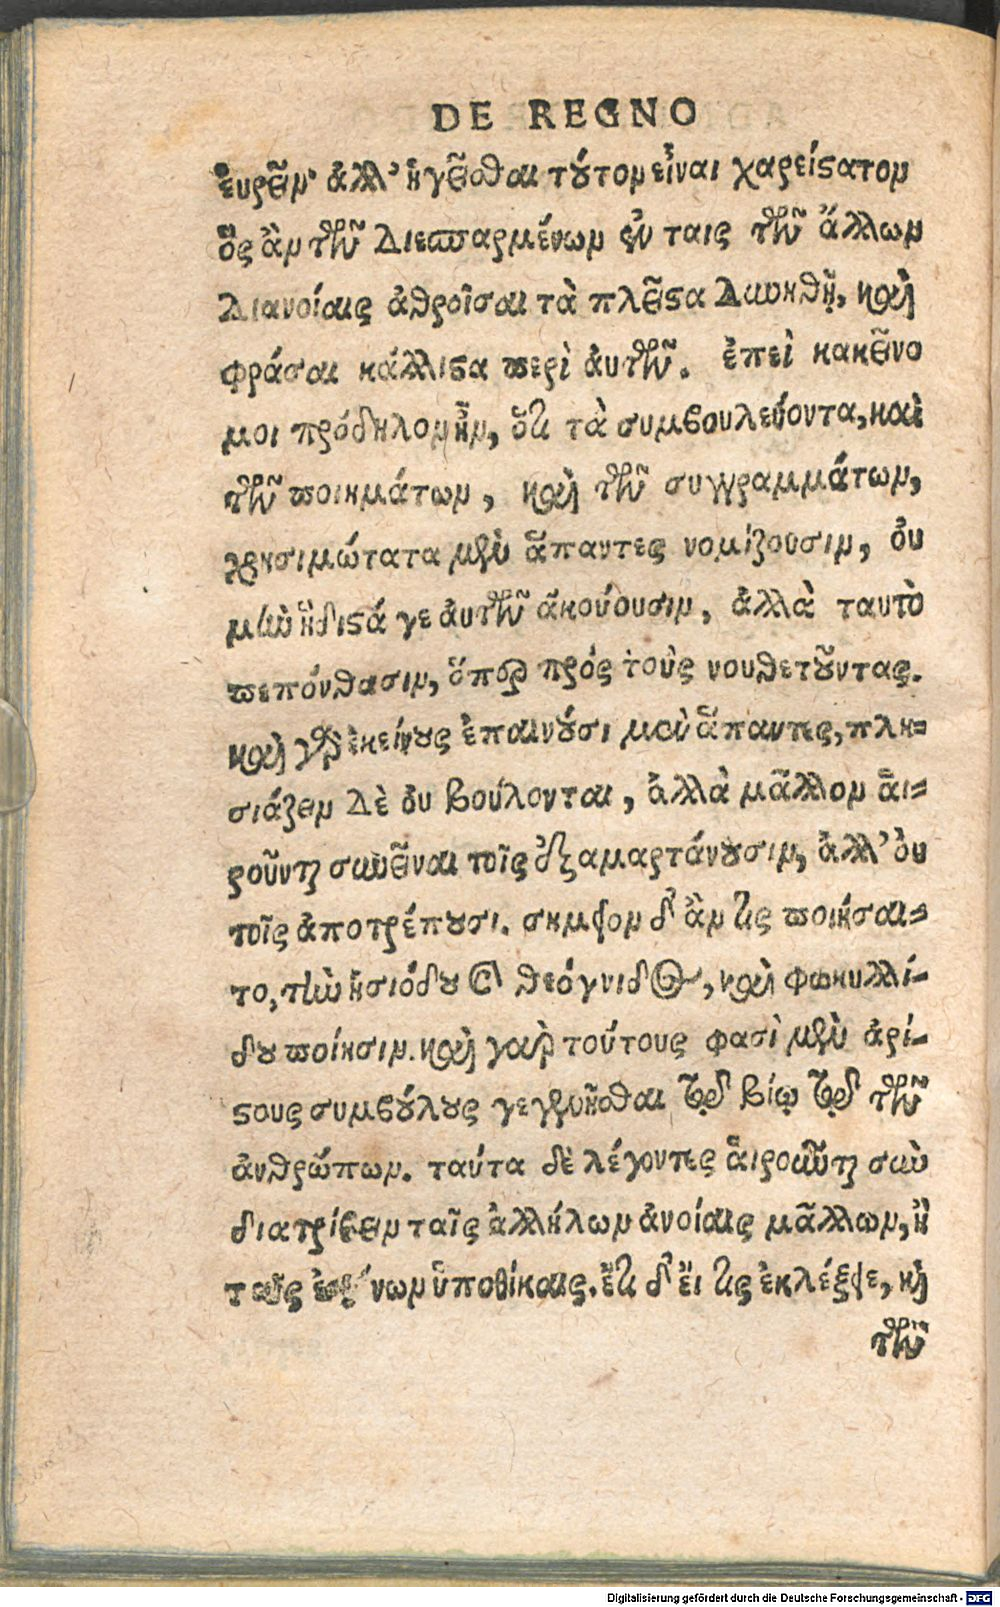 DE REGNO
εὑρεῖν· ἀλλ' ἡγεῖσθαι τοῦτον εἶναι χαρείστατον
ὃς ἂν τῶν διεσπαρμένων ἐν ταις τῶν ἄλλων
διανοίαις ἀθροῖσαι τὰ πλεῖστα δυνηθῇ, καὶ
φράσαι κάλλιστα περὶ ἀυτῶν. ἐπεὶ κακεῖνο
μοι πρόδηλον ἦν, ὅτι τὰ συμβουλεύοντα, καὶ
τῶν ποιημάτων, καὶ τῶν συγγραμμάτων,
χρησιμώτατα μὲν ἅπαντες νομίζουσιν, ὀυ
μὴν ἥδιστά γε ἀυτῶν ἀκούουσιν, ἀλλὰ ταυτὸ
πεπόνθασιν, ὅπερ πρός τοὺς νουθετοῦντας.
καὶ γὰρ ἐκείνους ἐπαινοῦσι μὲν ἅπαντες, πλη-
σιάζειν δὲ ὀυ βούλονται, ἀλλὰ μᾶλλον ἁι-
ροῦνται συνεῖναι τοῖς ἐξαμαρτάνουσιν, ἀλλ' ὀυ
τοῖς ἀποτρέπουσι. σημεῖον δ' ἂν τις ποιήσαι-
το, τὴν ἡσιόδου καὶ θεόγνιδος, καὶ φωκυλλί-
δου ποίησιν. καὶ γαὰρ τούτους φασὶ μὲν ἀρί-
στους συμβούλους γεγενῆσθαι τῷ βίῳ τῷ τῶν
ἀνθρώπων. ταύτα δὲ λέγοντες ἁιροῦνται συν
διατρίβειν ταῖς ἀλλήλων ἀνοίαις μᾶλλων, ἢ
ταῖς ἐκείνων ὑποθήκαις. ἔτι δ' ἔι τις ἐκλέξειε, καὶ
τῶν
Digitalisierung gefördert durch die Deutsche Forschungsgemeinschaft - DFG